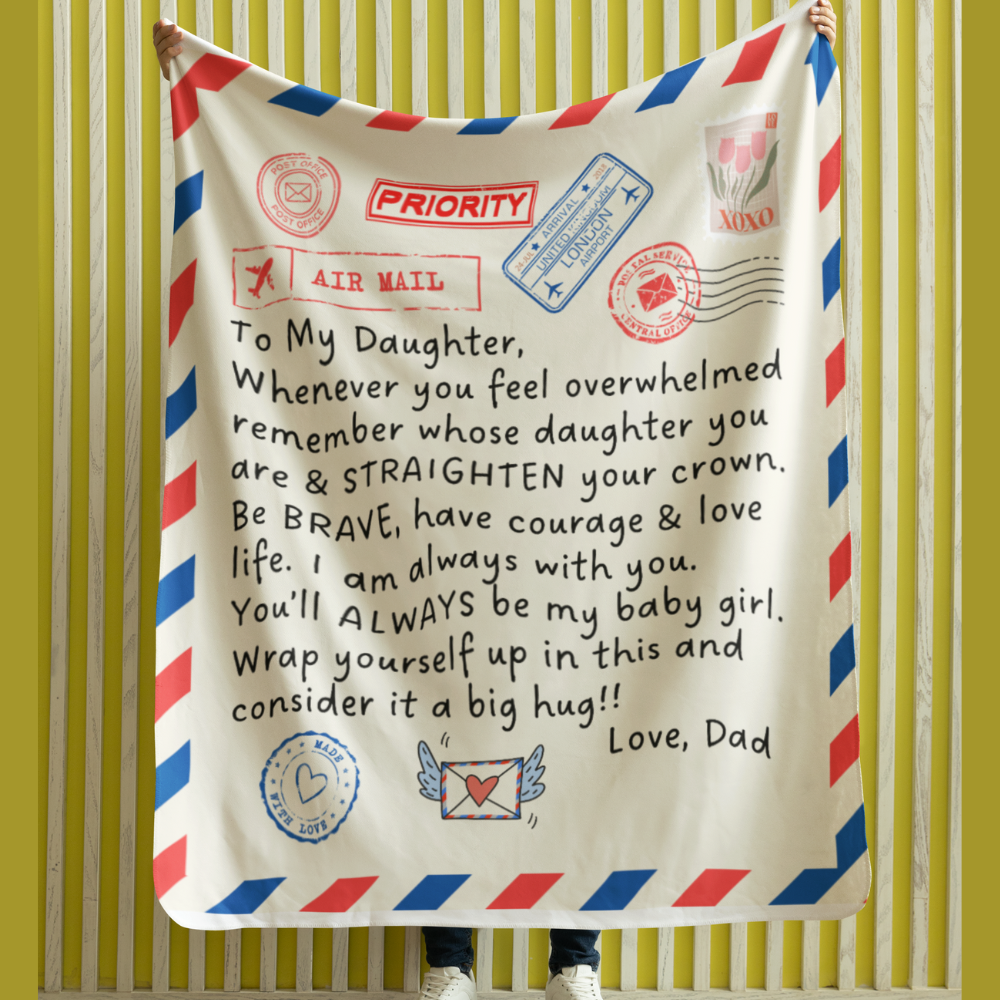 POST OFFICE
POST OFFICE
PRIORITY
24 JUL ★ ARRIVAL ★ 2018
UNITED
LONDON
AIRPORT
XOXO
AIR MAIL
POSTAL SERVICE
CENTRAL OFFICE
To My Daughter,
Whenever you feel overwhelmed
remember whose daughter you
are & STRAIGHTEN your crown.
Be BRAVE, have courage & love
life. I am always with you.
You'll ALWAYS be my baby girl.
Wrap yourself up in this and
consider it a big hug!!
Love, Dad
MADE
WITH LOVE